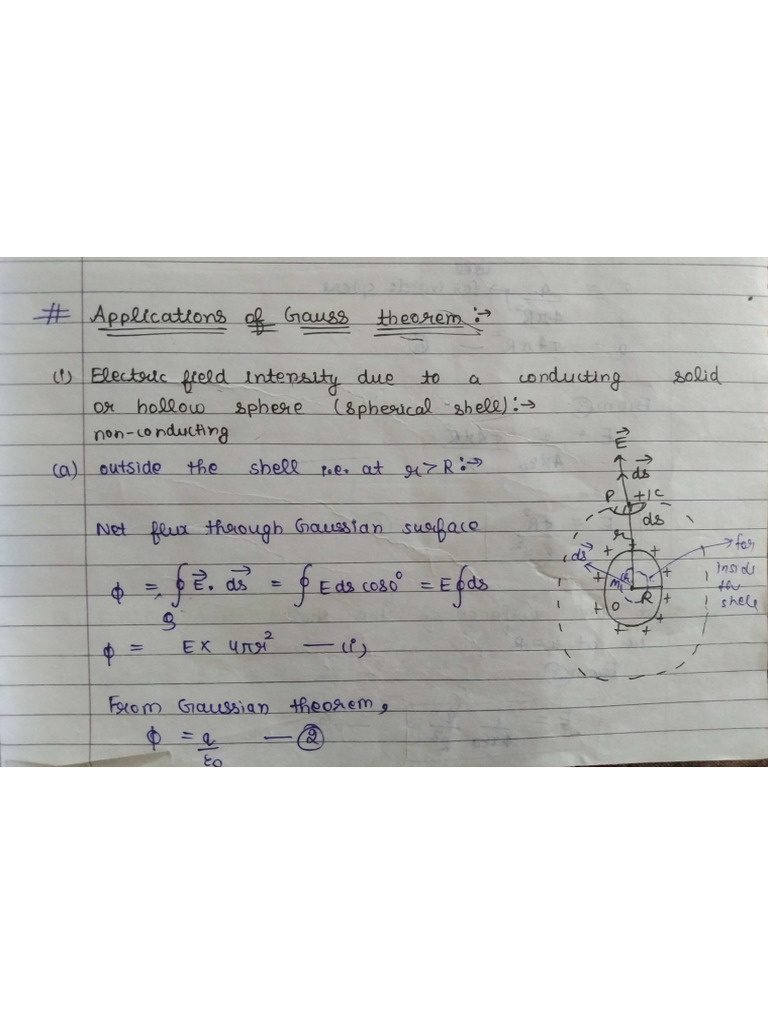 # Applications of Gauss theorem :→
(i) Electric field intensity due to a conducting solid
or hollow sphere (spherical shell) :→
non-conducting
(a) outside the shell i.e. at r > R :→
Net flux through Gaussian surface
ϕ = ∮ E⃗. ds⃗ = ∮ E ds cos0° = E ∮ ds
ϕ = E × 4πr² — (i)
From Gaussian theorem,
ϕ = q/ε0 — ②
E⃗
ds⃗
P +1C
ds
r
ds⃗
R
O
→ for
inside
the
shell